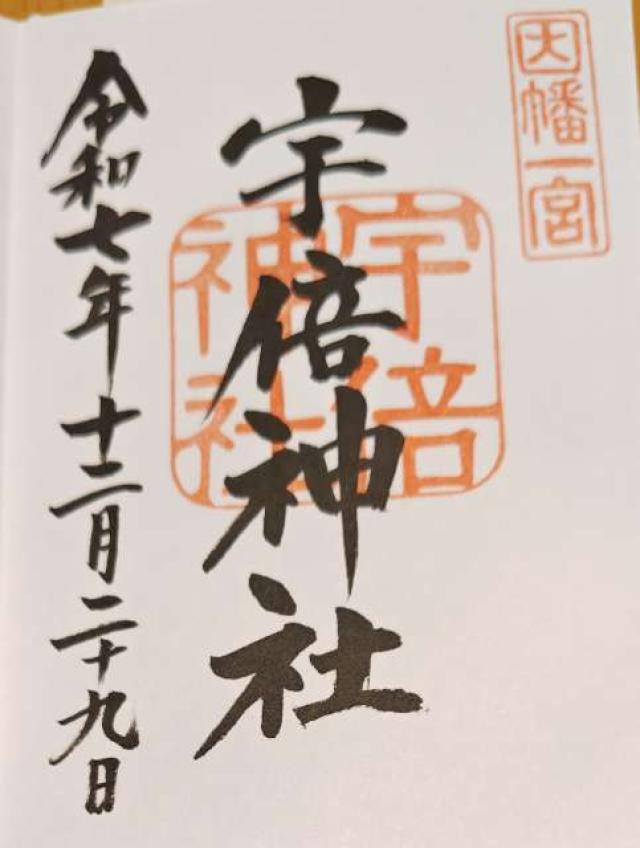 因幡一宮
宇倍神社
宇倍神社
令和七年十二月二十九日